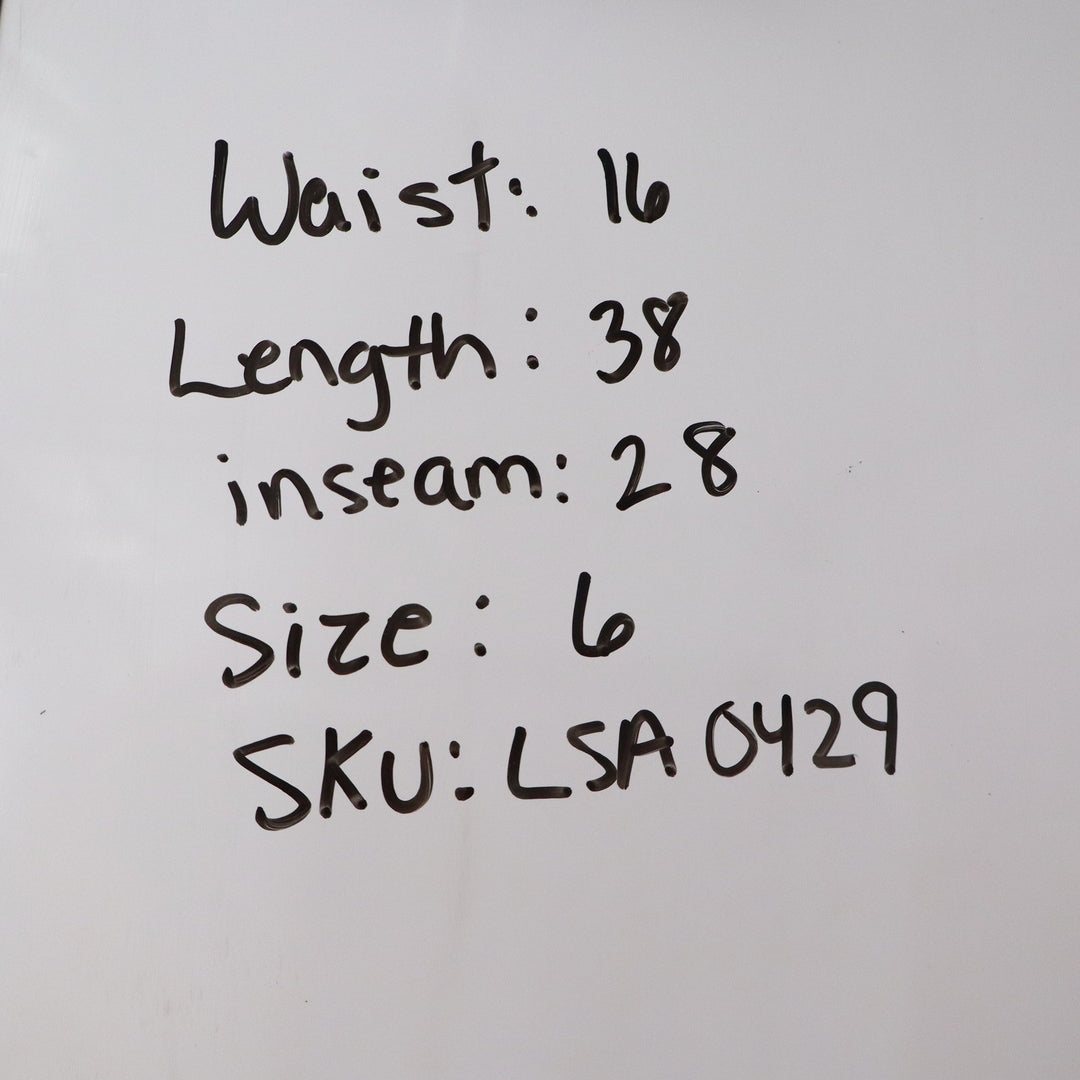 Waist: 16
Length: 38
inseam: 28
Size: 6
SKU: LSA 0429